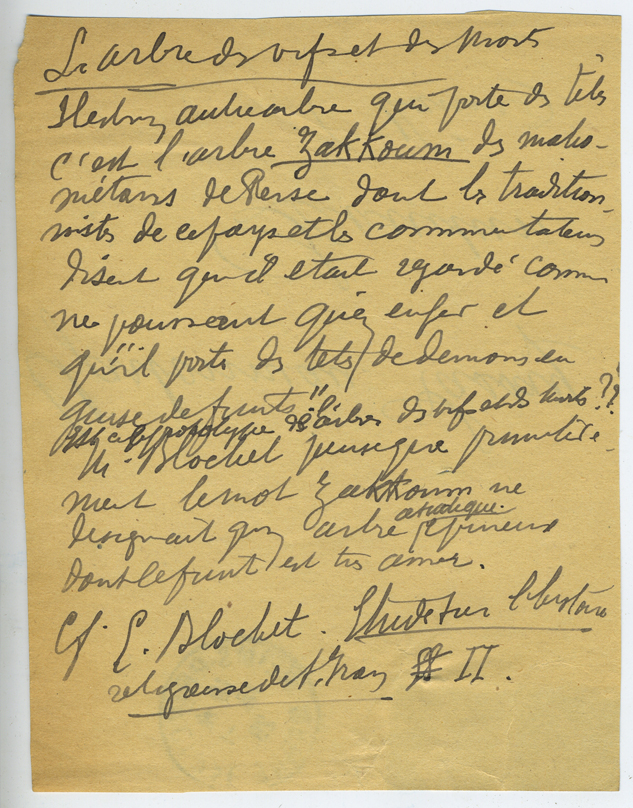 L'arbre des vifs et des morts
Il est un autre arbre qui porte des têtes
c'est l'arbre Zakkoum des maho-
métans de Perse dont les tradition-
nistes de ce pays et les commentateurs
disent qu'il était regardé comme
ne poussant qu'en enfer et
qu'"il porte des têtes de démons en
guise de fruits".
Est-ce le prototype de l'arbre des vifs et des morts ??
M. Blochet pense que primitive-
ment le mot Zakkoum ne
désignait qu'un arbre épineux
asiatique
dont le fruit est très amer.
Cf. E. Blochet. Etude sur l'histoire
religieuse de l'Iran II.